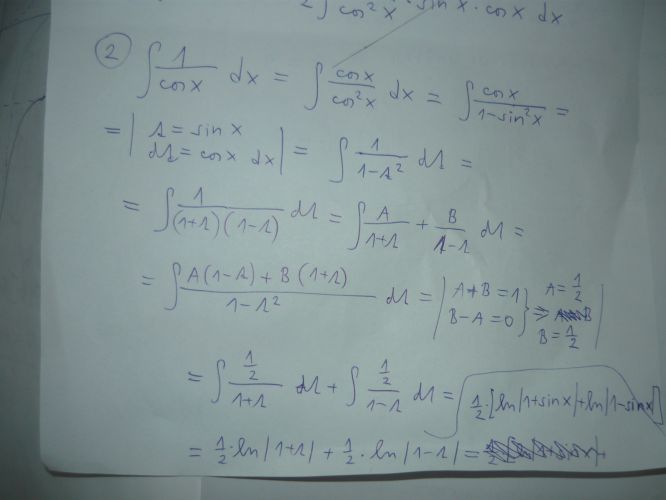 2∫ cos²x · sin x · cos x dx
② ∫ 1/cos x dx = ∫ cos x/cos²x dx = ∫ cos x/1-sin²x =
= | s = sin x
ds = cos x dx | = ∫ 1/1-s² ds =
= ∫ 1/(1+s)(1-s) ds = ∫ A/1+s + B/1-s ds =
= ∫ A(1-s) + B(1+s)/1-s² ds = | A+B=1
B-A=0 } ⇒ A=1/2
B=1/2 |
= ∫ 1/2/1+s ds + ∫ 1/2/1-s ds = 1/2·[ln|1+sinx|+ln|1-sinx|]
= 1/2·ln|1+s| + 1/2·ln|1-s| =